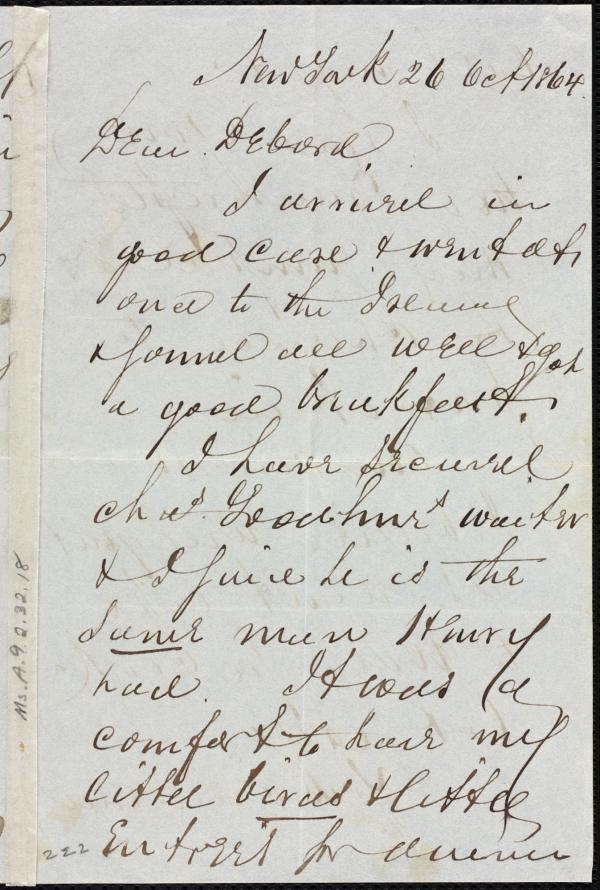 New York 26 Oct 1864.
Dear Debord
I arrived in
good case & went at
once to the
& found all well & got
a good breakfast.
I have secured
Chas. Goodhue's waiter
& I find he is the
same man Henry
had. It was a
comfort to have my
little birds & little
Entrees for dinner
222
Ms. A. 9. 2. 32. 18